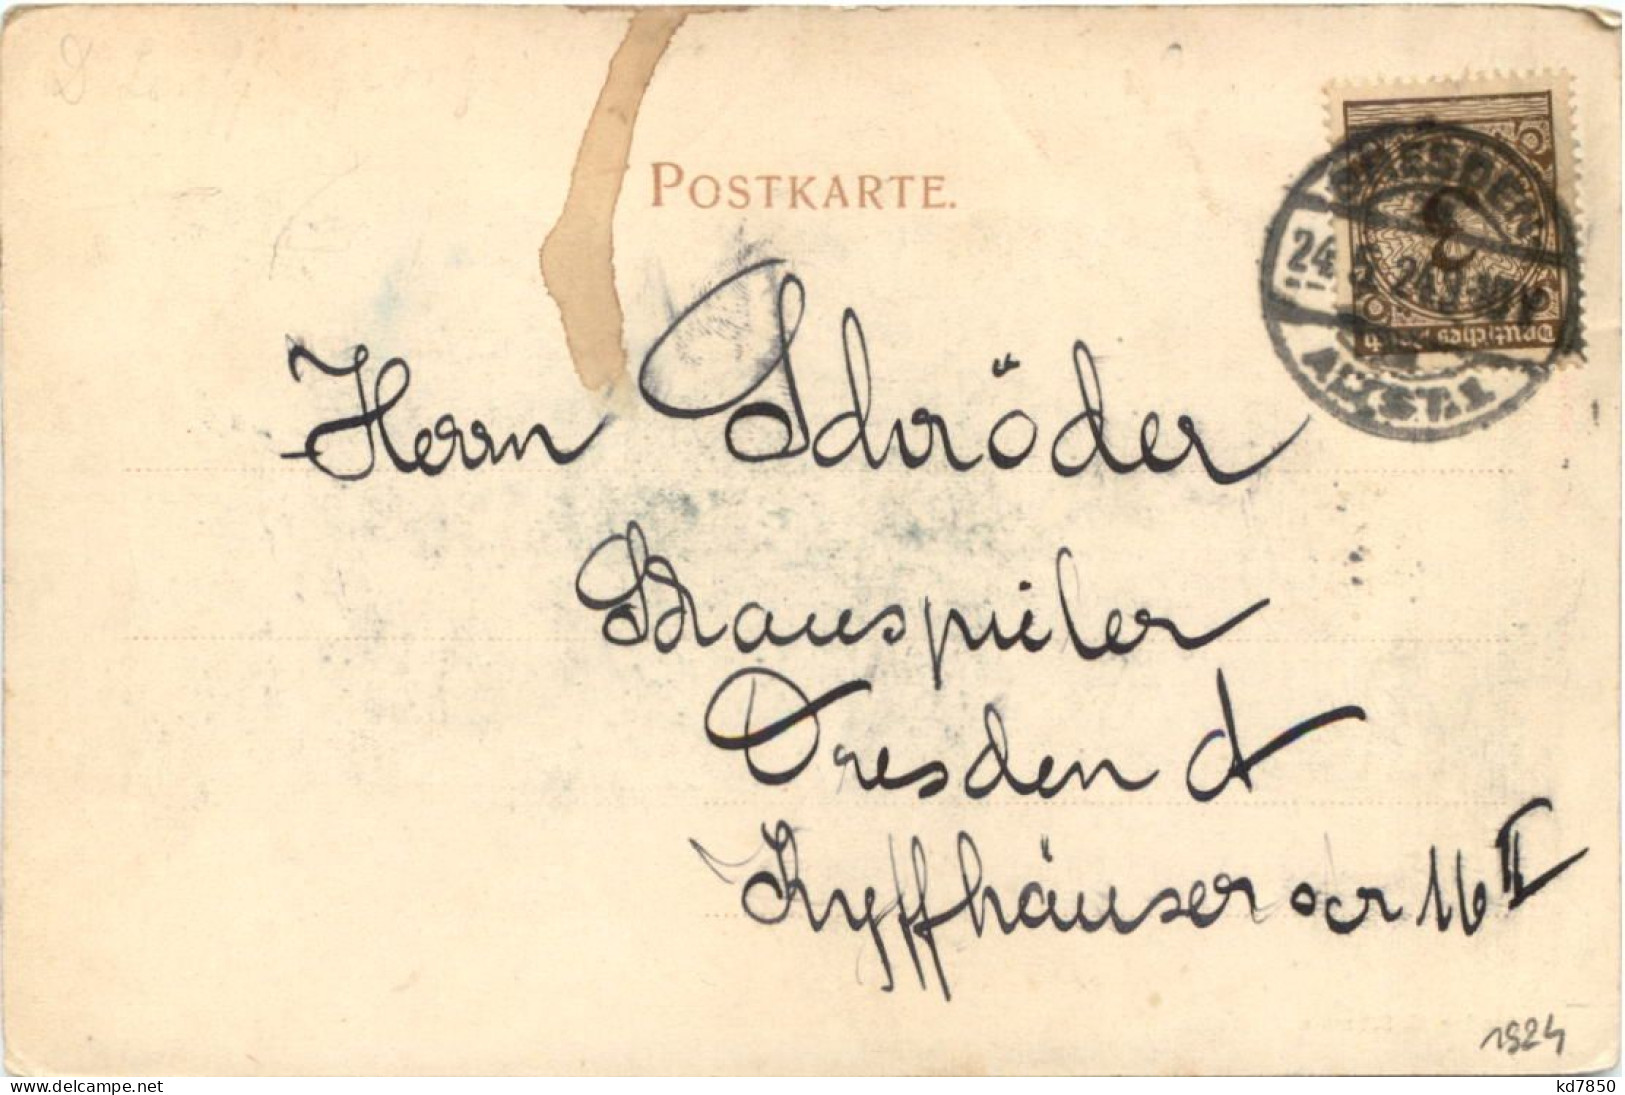 POSTKARTE.
DRESDEN
24.5.24
ALTST. 1
3
Deutsches Reich
Herrn Schröder
Schauspieler
Dresden A
Kyffhäuser str 16 II
1924
kd7850